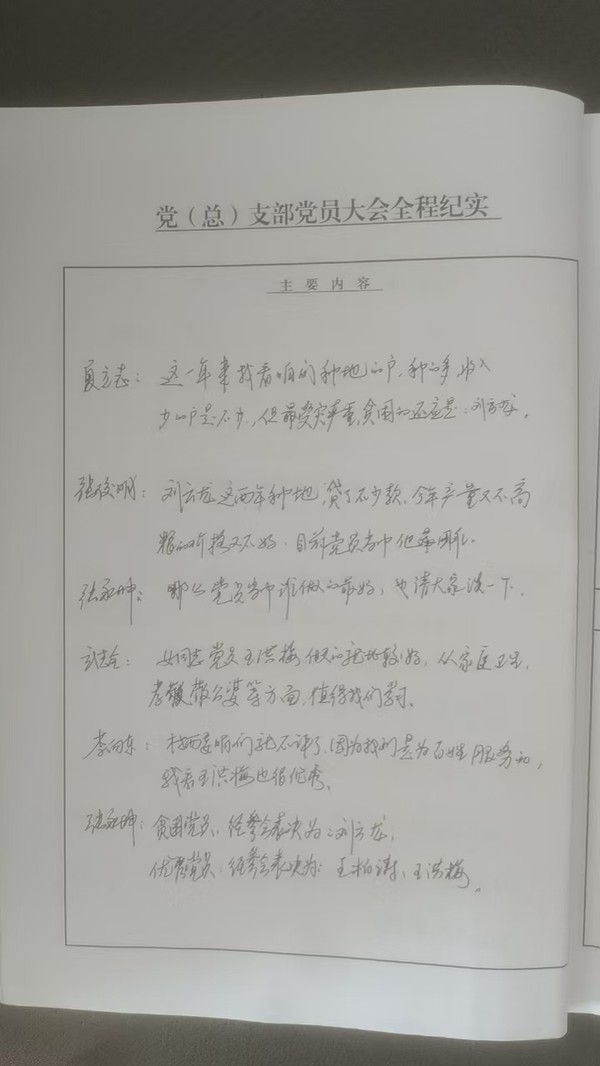 党（总）支部党员大会全程纪实
主要内容
夏立志：这一年来我看咱们种地的户，种的多，收入
少的户是不少，但最受灾严重，贫困的还应是：刘云龙。
张俊明：刘云龙这两年种地，贷了不少款，今年产量又不高
粮的价格又不好，目前党员当中他最困难。
张永坤：那么党员当中谁做的最好，也请大家谈一下。
武志全：女同志党员王洪梅做的就比较好，从家庭卫生，
孝敬公婆等方面，值得我们学习。
李向东：村两委咱们就不评了，因为我们是为百姓服务的，
我看王洪梅也很优秀。
张永坤：贫困党员，经参会表决为：刘云龙，
优秀党员，经参会表决为：王柏涛、王洪梅。